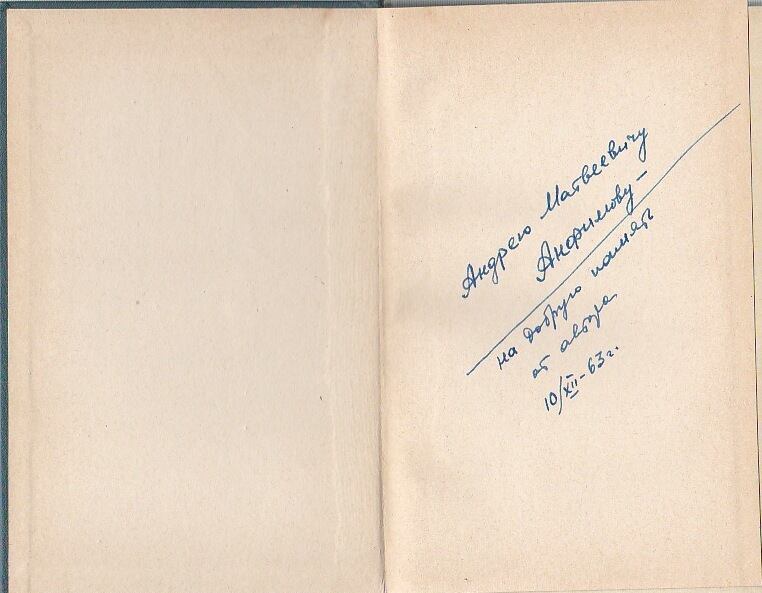 Андрею Матвеевичу
Анфимову –
на добрую память
от автора
10/XII-63 г.